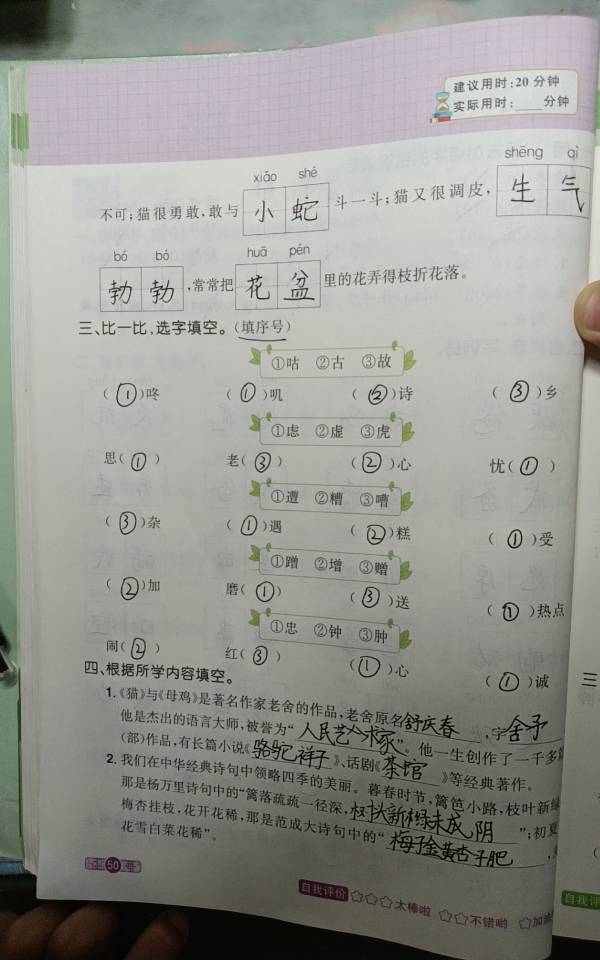 建议用时:20 分钟
实际用时: 分钟
xiǎo shé shēng qì
不可;猫很勇敢,敢与 小 蛇 斗一斗;猫又很调皮, 生 气
bó bó huā pén
勃 勃 ,常常把 花 盆 里的花弄得枝折花落。
三、比一比,选字填空。(填序号)
①咕 ②古 ③故
(①)咚 (①)叽 (②)诗 (③)乡
①虑 ②虚 ③虎
思(①) 老(③) (②)心 忧(①)
①遭 ②糟 ③嘈
(③)杂 (①)遇 (②)糕 (①)受
①蹭 ②增 ③赠
(②)加 磨(①) (③)送 ( )热点
①忠 ②钟 ③肿
闹(②) 红(③) (①)心 (①)诚
四、根据所学内容填空。
1.《猫》与《母鸡》是著名作家老舍的作品,老舍原名舒庆春,字舍予
他是杰出的语言大师,被誉为“人民艺术家”。他一生创作了一千多
(部)作品,有长篇小说《骆驼祥子》、话剧《茶馆》等经典著作。
2. 我们在中华经典诗句中领略四季的美丽。暮春时节,篱笆小路,枝叶新绿
那是杨万里诗句中的“篱落疏疏一径深,树头新绿未成阴”;初夏
梅杏挂枝,花开花稀,那是范成大诗句中的“梅子金黄杏子肥,
花雪白菜花稀”。
50
自我评价 ☆☆☆太棒啦 ☆☆不错哟 ☆加油
自我评
三